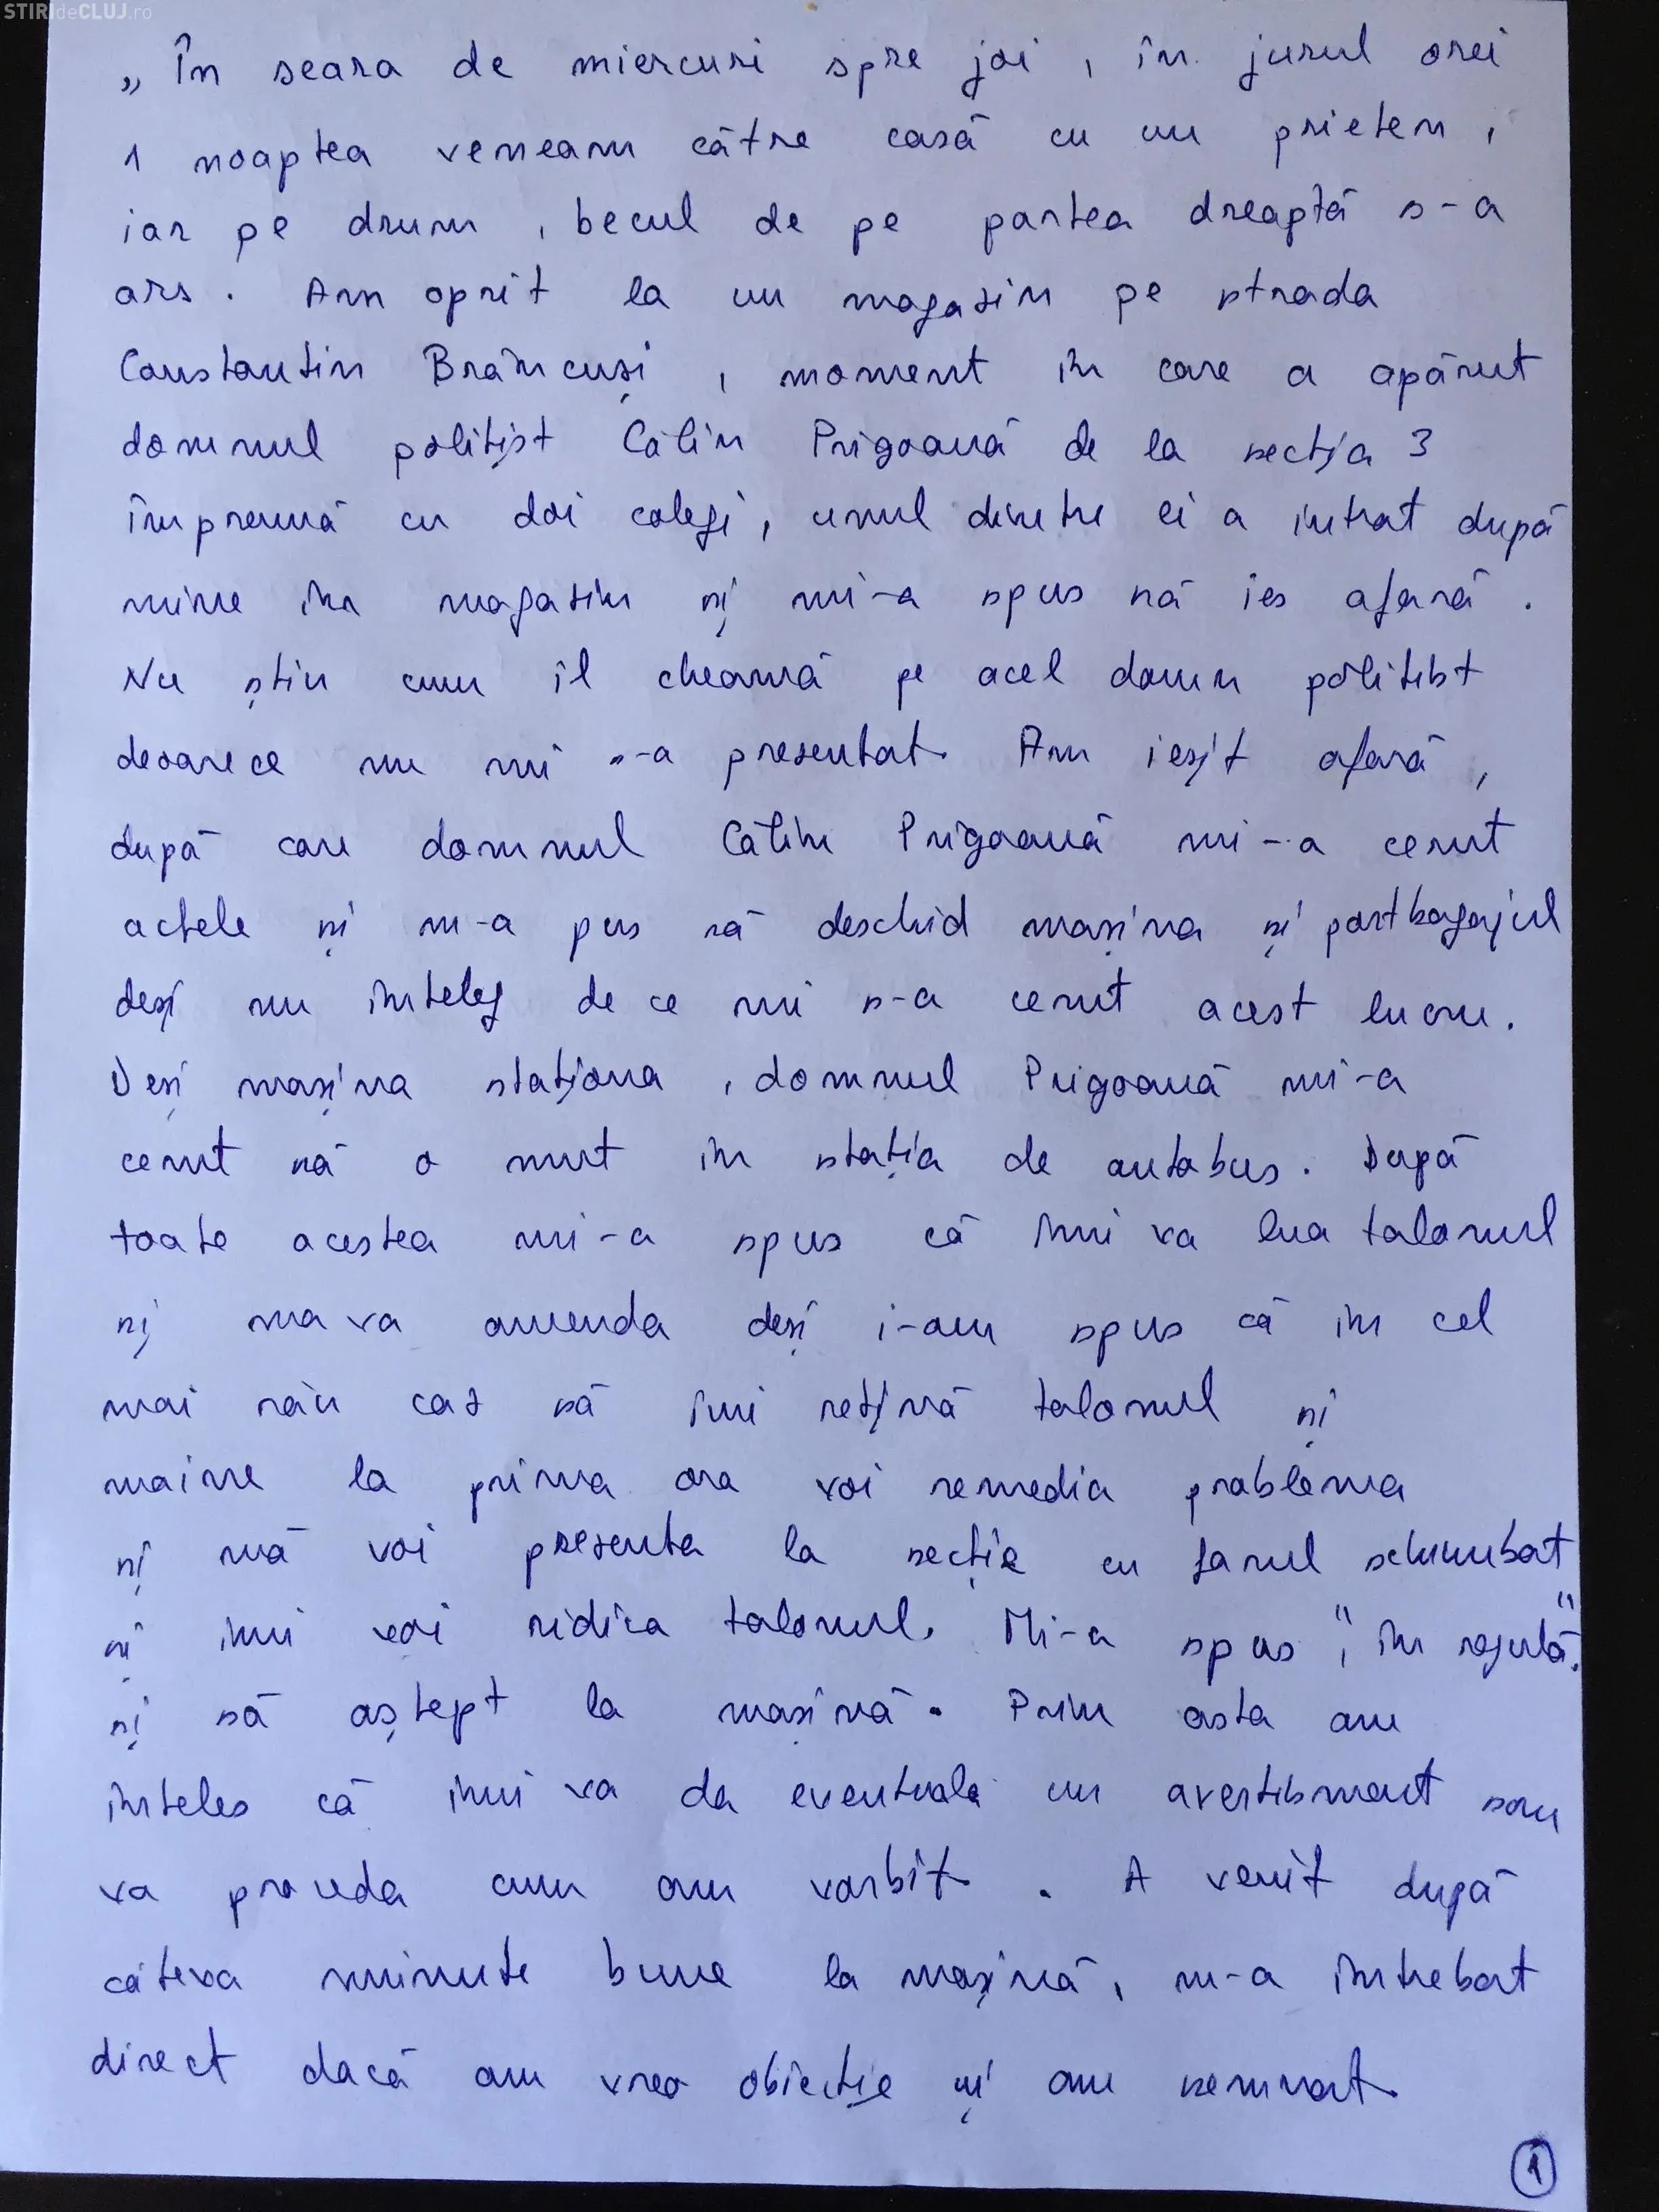 STIRIdeCLUJ.ro
„ În seara de miercuri spre joi , în jurul orei
1 noaptea veneam către casă cu un prieten ,
iar pe drum , becul de pe partea dreaptă s-a
ars . Am oprit la un magazin pe strada
Constantin Brâncuși , moment în care a apărut
domnul polițist Călin Prigoană de la secția 3
împreună cu doi colegi , unul dintre ei a intrat după
mine în magazin și mi-a spus să ies afară .
Nu știu cum îl cheamă pe acel domn polițist
deoarece nu mi s-a prezentat. Am ieșit afară ,
după care domnul Călin Prigoană mi-a cerut
actele și m-a pus să deschid mașina și portbagajul
deși nu înteleg de ce mi s-a cerut acest lucru .
Deși mașina staționa , domnul Prigoană mi-a
cerut să o mut în stația de autobus . După
toate acestea mi-a spus că îmi va lua talonul
și ma va amenda deși i-am spus că in cel
mai rău caz să îmi rețină talonul și
maine la prima ora voi remedia problema
și mă voi prezenta la secție cu farul schimbat
și imi voi ridica talonul. Mi-a spus " , în regulă. "
și să aștept la mașină . Prin asta am
înteles că imi va da eventuala un avertisment sau
va proceda cum am vorbit . A venit după
câteva minute bune la mașină , m-a întrebat
direct dacă am vreo obiecție și am semnat.
1